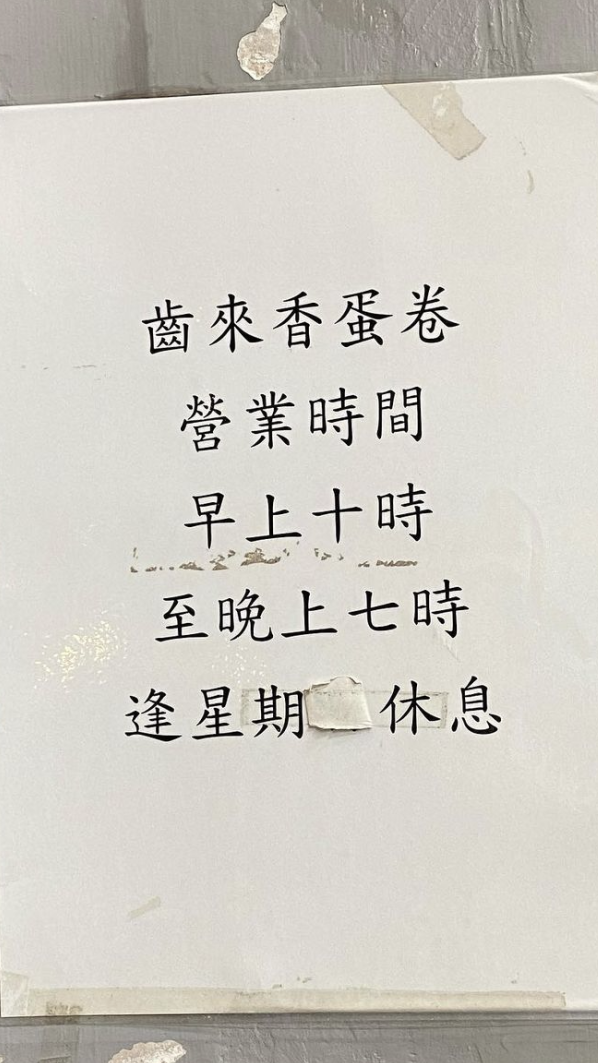 齒來香蛋卷
營業時間
早上十時
至晚上七時
逢星期 休息